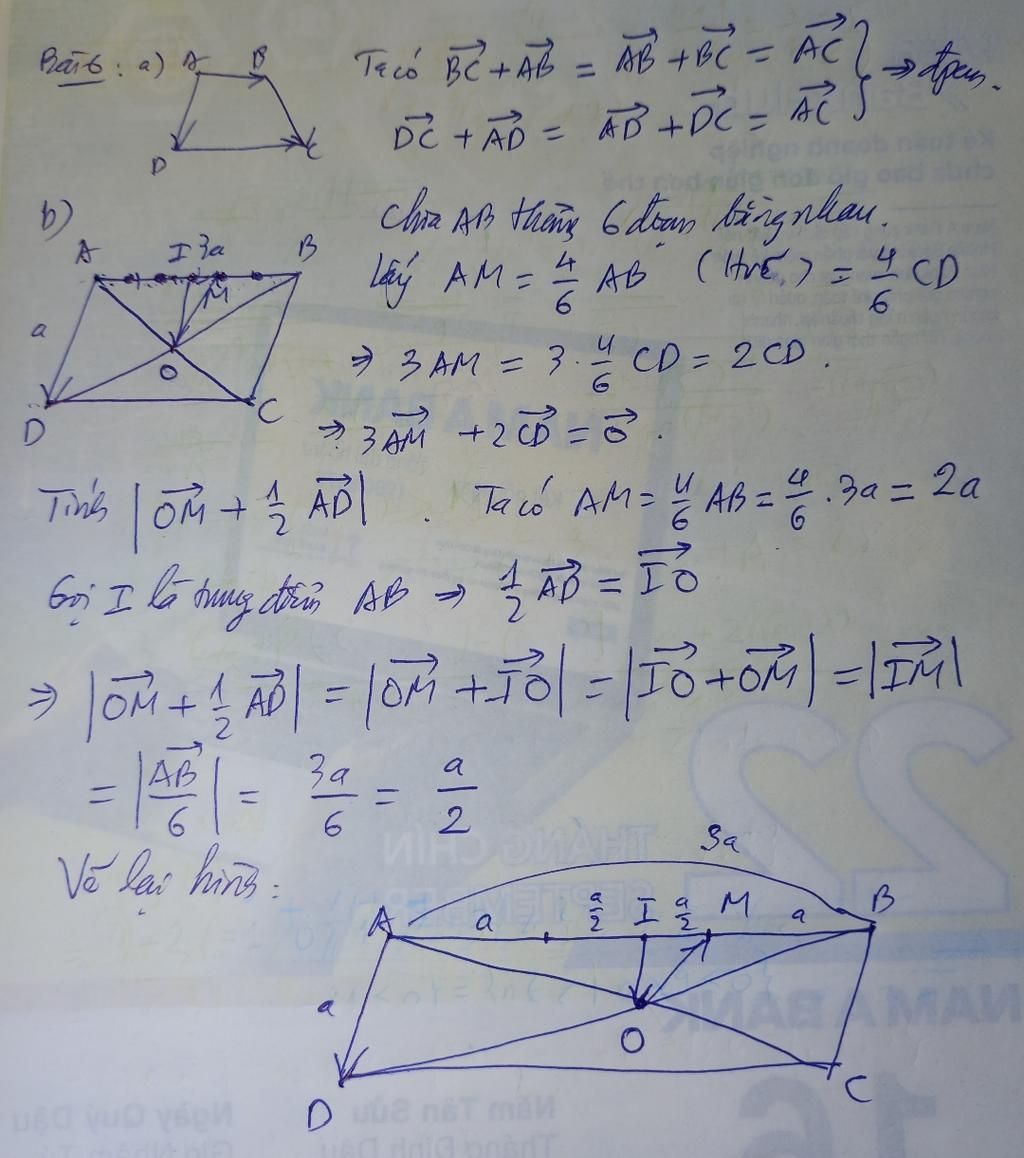 Bài 6: a) A B D C
Ta có BC→ + AB→ = AB→ + BC→ = AC→ } ⇒ đpcm.
DC→ + AD→ = AD→ + DC→ = AC→
b) A I 3a B M a O D C
Chia AB thành 6 đoạn bằng nhau.
Lấy AM = 4/6 AB = 4/6 CD
⇒ 3AM = 3 · 4/6 CD = 2CD.
⇒ 3AM→ + 2CD→ = 0→.
Tính |OM→ + 1/2 AD→|. Ta có AM = 4/6 AB = 4/6 . 3a = 2a
Gọi I là trung điểm AB ⇒ 1/2 AD→ = IO→
⇒ |OM→ + 1/2 AD→| = |OM→ + IO→| = |IO→ + OM→| = |IM→|
= |AB→/6| = 3a/6 = a/2
Vẽ lại hình:
3a
A a a/2 I a/2 M a B
a
O
D C